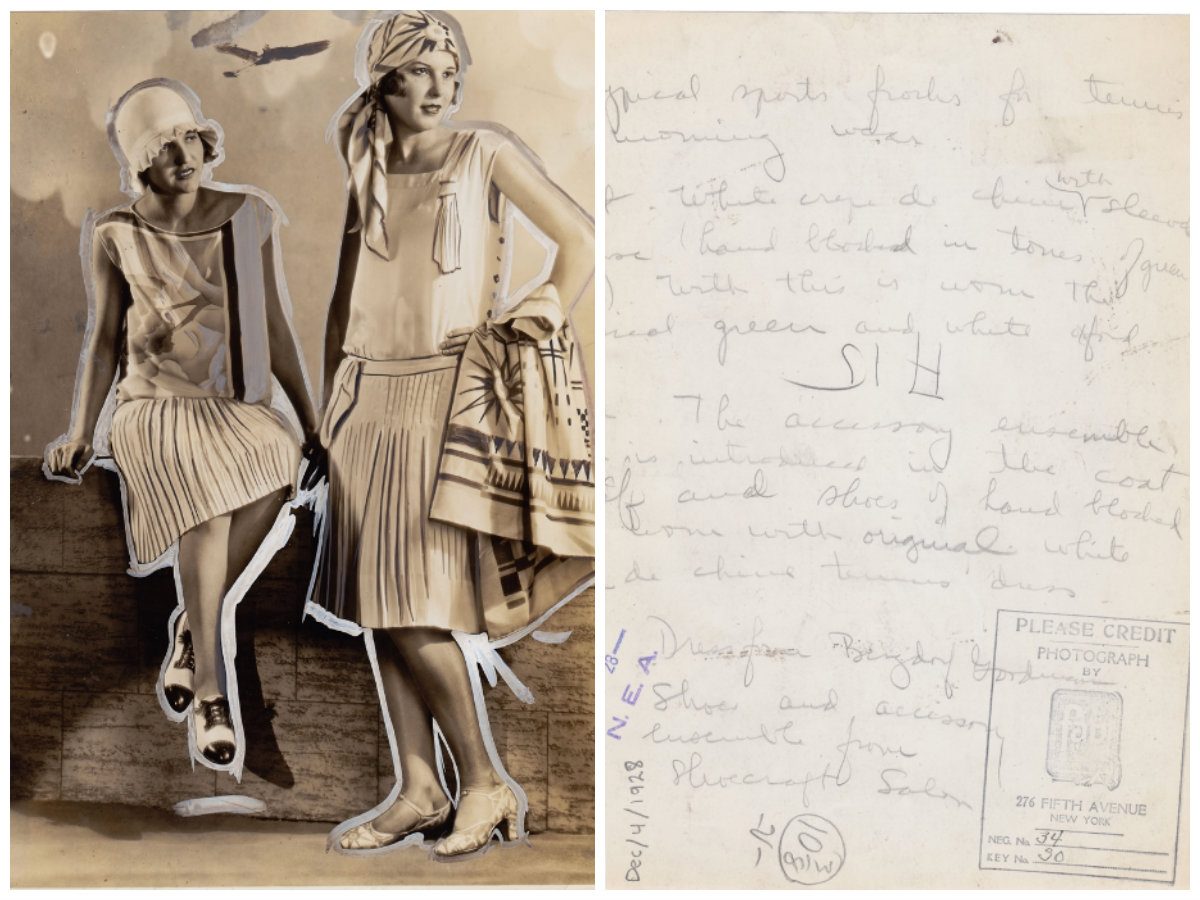 ypical sports frocks for tennis
morning wear
. White crepe de chine with sleeve
hand blocked in tones of green
) With this is worn the
green and white
HIS
The accessory ensemble
is introduced in the coat
and shoes of hand blocked
worn with original white
de chine tennis dress
Dress from Bergdorf Goodman
Shoes and accessory
ensemble from
Shoecraft Salon
28—
N. E. A.
Dec/4/1928
10
PLEASE CREDIT
PHOTOGRAPH
BY
276 FIFTH AVENUE
NEW YORK
NEG. No 34
KEY No 30